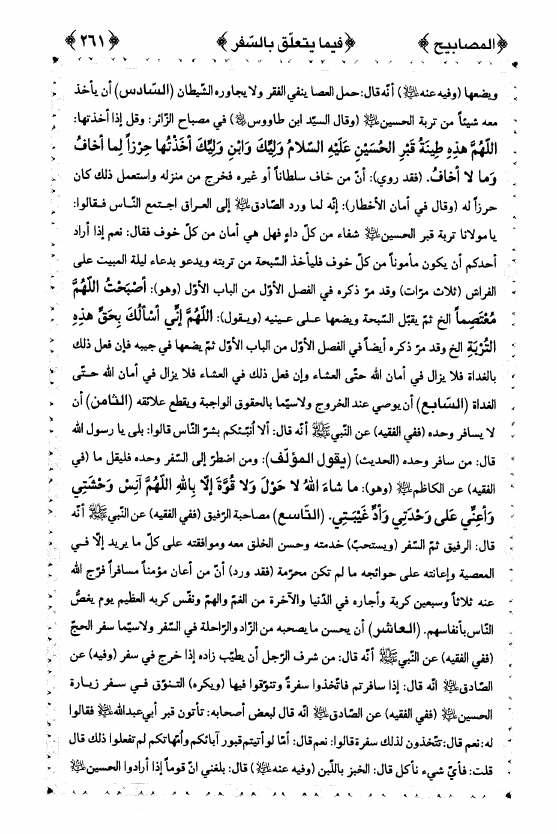 ﴿المصابيح﴾ ﴿فيما يتعلّق بالسّفر﴾ ﴿٢٦١﴾
ويضعها (وفيه عنه ﷺ) أنّه قال: حمل العصا ينفي الفقر ولا يجاوره الشّيطان (السّادس) أن يأخذ
معه شيئاً من تربة الحسين (وقال السيّد ابن طاووس) في مصباح الزّائر: وقل إذا أخذتها:
اللّهُمَّ هذِهِ طِينَةُ قَبْرِ الحُسَيْنِ عَلَيْهِ السَّلامُ وَلِيِّكَ وَابْنِ وَلِيِّكَ أَخَذْتُها حِرْزاً لِما أَخافُ
وَما لا أَخافُ. (فقد روي): أنّ من خاف سلطاناً أو غيره فخرج من منزله واستعمل ذلك كان
حرزاً له (وقال في أمان الأخطار): إنّه لما ورد الصّادق إلى العراق اجتمع النّاس فقالوا:
يا مولانا تربة قبر الحسين شفاء من كلّ داء فهل هي أمان من كلّ خوف فقال: نعم إذا أراد
أحدكم أن يكون مأموناً من كلّ خوف فليأخذ السّبحة من تربته ويدعو بدعاء ليلة المبيت على
الفراش (ثلاث مرّات) وقد مرّ ذكره في الفصل الأوّل من الباب الأوّل (وهو): أَصْبَحْتُ اللّهُمَّ
مُعْتَصِماً الخ ثمّ يقبّل السّبحة ويضعها على عينيه (ويقول): اللّهُمَّ إِنِّي أَسْأَلُكَ بِحَقِّ هذِهِ
التُّرْبَةِ الخ وقد مرّ ذكره أيضاً في الفصل الأوّل من الباب الأوّل ثمّ يضعها في جيبه فإن فعل ذلك
بالغداة فلا يزال في أمان الله حتّى العشاء وإن فعل ذلك في العشاء فلا يزال في أمان الله حتّى
الغداة (السّابع) أن يوصي عند الخروج ولاسيّما بالحقوق الواجبة ويقطع علائقه (الثّامن) أن
لا يسافر وحده (ففي الفقيه) عن النّبي ﷺ أنّه قال: ألا أنبّئكم بشرّ النّاس قالوا: بلى يا رسول الله
قال: من سافر وحده (الحديث) (يقول المؤلّف): ومن اضطرّ إلى السّفر وحده فليقل ما (في
الفقيه) عن الكاظم (وهو): ما شاءَ اللهُ لا حَوْلَ وَلا قُوَّةَ إِلّا بِاللهِ اللّهُمَّ آنِسْ وَحْشَتِي
وَأَعِنِّي عَلى وَحْدَتِي وَأَدِّ غَيْبَتِي. (التّاسع) مصاحبة الرّفيق (ففي الفقيه) عن النّبي ﷺ أنّه
قال: الرفيق ثمّ السّفر (ويستحبّ) خدمته وحسن الخلق معه وموافقته على كلّ ما يريد إلّا في
المعصية وإعانته على حوائجه ما لم تكن محرّمة (فقد ورد) أنّ من أعان مؤمناً مسافراً فرّج الله
عنه ثلاثاً وسبعين كربة وأجاره في الدّنيا والآخرة من الغمّ والهمّ ونفّس كربه العظيم يوم يغصُّ
النّاس بأنفاسهم. (العاشر) أن يحسن ما يصحبه من الزّاد والرّاحلة في السّفر ولاسيّما سفر الحجّ
(ففي الفقيه) عن النّبي ﷺ أنّه قال: من شرف الرّجل أن يطيّب زاده إذا خرج في سفر (وفيه) عن
الصّادق انّه قال: إذا سافرتم فاتّخذوا سفرةً وتنوّقوا فيها (ويكره) التنوّق في سفر زيارة
الحسين (ففي الفقيه) عن الصّادق انّه قال لبعض أصحابه: تأتون قبر أبي عبدالله فقالوا
له: نعم قال: تتّخذون لذلك سفرة قالوا: نعم قال: أمّا لو أتيتم قبور آبائكم وأمّهاتكم لم تفعلوا ذلك قال
قلت: فأيّ شيء نأكل قال: الخبز باللّبن (وفيه عنه) قال: بلغني انّ قوماً إذا أرادوا الحسين